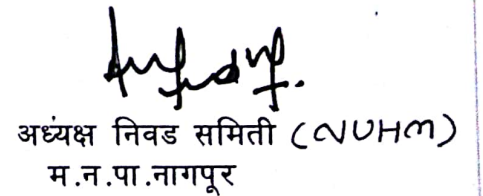 अध्यक्ष निवड समिती (NUHM)
म.न.पा.नागपूर